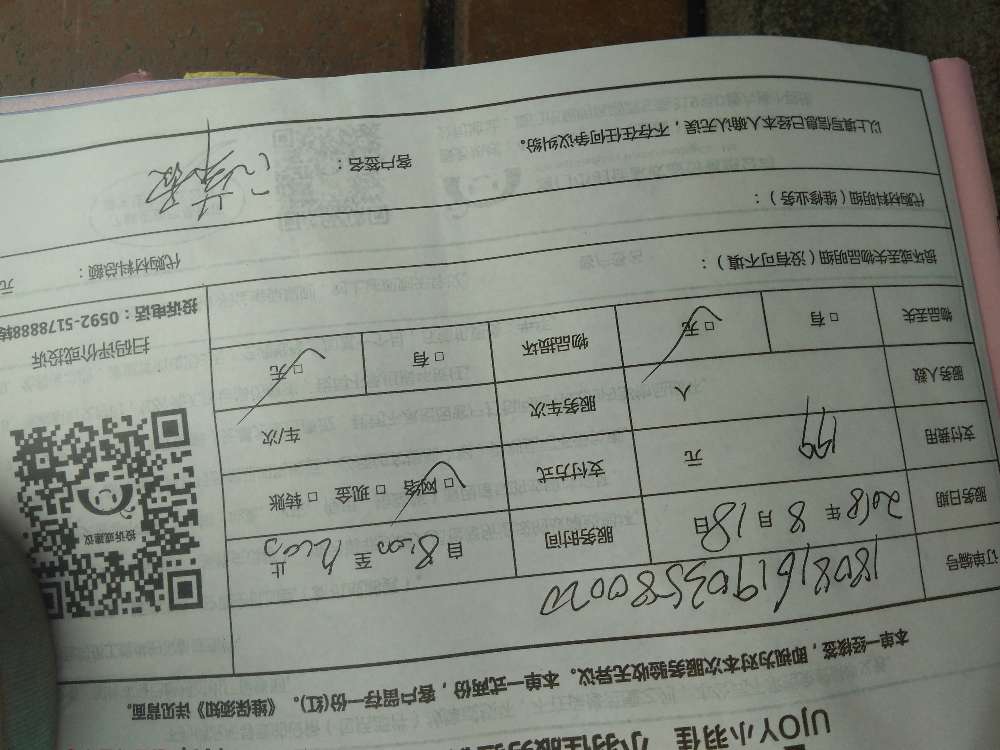 UJOY小羽佳
本单一经核签，即视为对本次服务验收无异议。本单一式两份，客户留存一份(红)。《维保须知》详见背面。
订单编号 180816190358002
服务日期 2018年8月18日 服务时间 自8:00至12:00止
支付费用 199 元 支付方式 □网络 □现金 □转账
服务人数 人 服务车次 车/次
物品丢失 □有 □无 物品损坏 □有 □无
投诉或建议
扫码评价或投诉
投诉电话：0592-5178888转
损坏或丢失物品明细（没有可不填）：
代购材料明细（维修业务）：
代购材料总额： 元
以上填写信息已经本人确认无误，不存在任何争议纠纷。
客户签名：